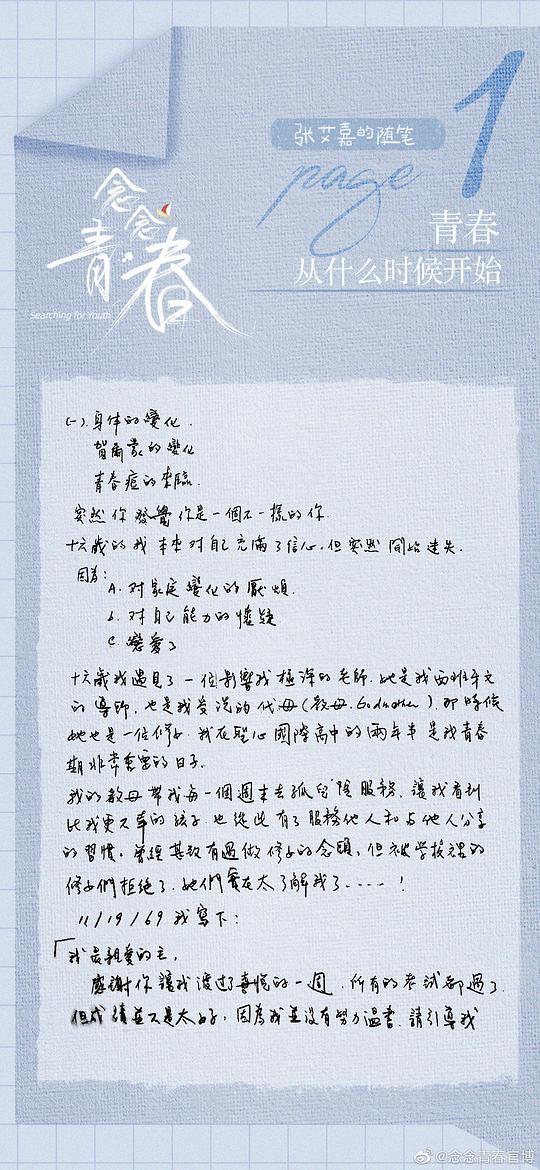 张艾嘉的随笔
page 1
念念
青春
Searching for Youth
青春
从什么时候开始
(一).身体的變化.
賀爾蒙的變化
青春痘的來臨.
突然你發覺你是一個不一樣的你.
十六歲的我本來對自己充滿了信心,但突然開始迷失.
因為:
A. 对家庭變化的厭煩.
b. 对自己能力的懷疑
c. 戀愛了
十六歲我遇見了一位影響我極深的老師.她是我西班牙文
的導師,也是我受洗的代母(教母.Godmother).那時候
她也是一位修女.我在聖心國際高中的兩年半是我青春
期非常重要的日子.
我的教母帶我每一個週末去孤兒院服務.讓我看到
比我更不幸的孩子也從此有了服務他人和与他人分享
的習慣.曾經甚致有過做修女的念頭,但被学校裡的
修女們拒絕了.她們實在太了解我了.....!
11/19/69 我寫下:
「我最親愛的主,
感謝你讓我渡过了喜悅的一週.所有的考试都過了
但成績並不是太好,因為我並沒有努力溫書.請引導我
@念念青春官博